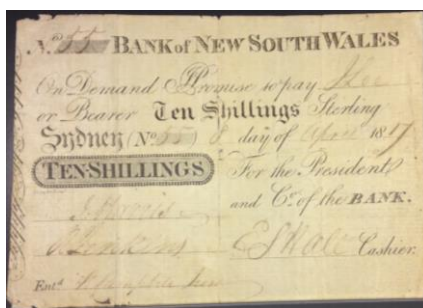 No. 55 BANK of NEW SOUTH WALES
On Demand I Promise to pay
or Bearer Ten Shillings Sterling
Sydney (No. 55) 8 day of April 1817
TEN-SHILLINGS For the President
and Co. of the BANK.
Jenkins E S Hall Cashier.
Entd.